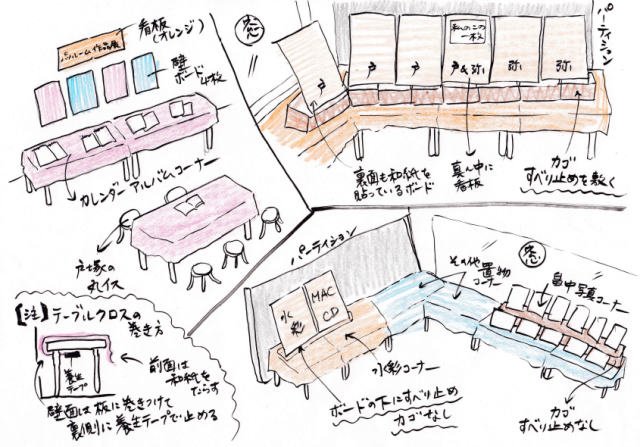 看板
(オレンジ)
パソルーム作品展
壁
ボード4枚
カレンダーアルバムコーナー
戸塚の
丸イス
窓
パーティション
私のこの
一枚
戸
戸
戸&弥
弥
弥
裏面も和紙を
貼っているボード
真ん中に
看板
カゴ
すべり止めを敷く
パーティション
水彩
MAC
CD
水彩コーナー
ボードの下にすべり止め
カゴなし
その他
置物
コーナー
窓
畠中写真コーナー
カゴ
すべり止めなし
【注】テーブルクロスの
巻き方
養生
テープ
前面は
和紙を
たらす
壁面は板に巻きつけて
裏側に養生テープで止める